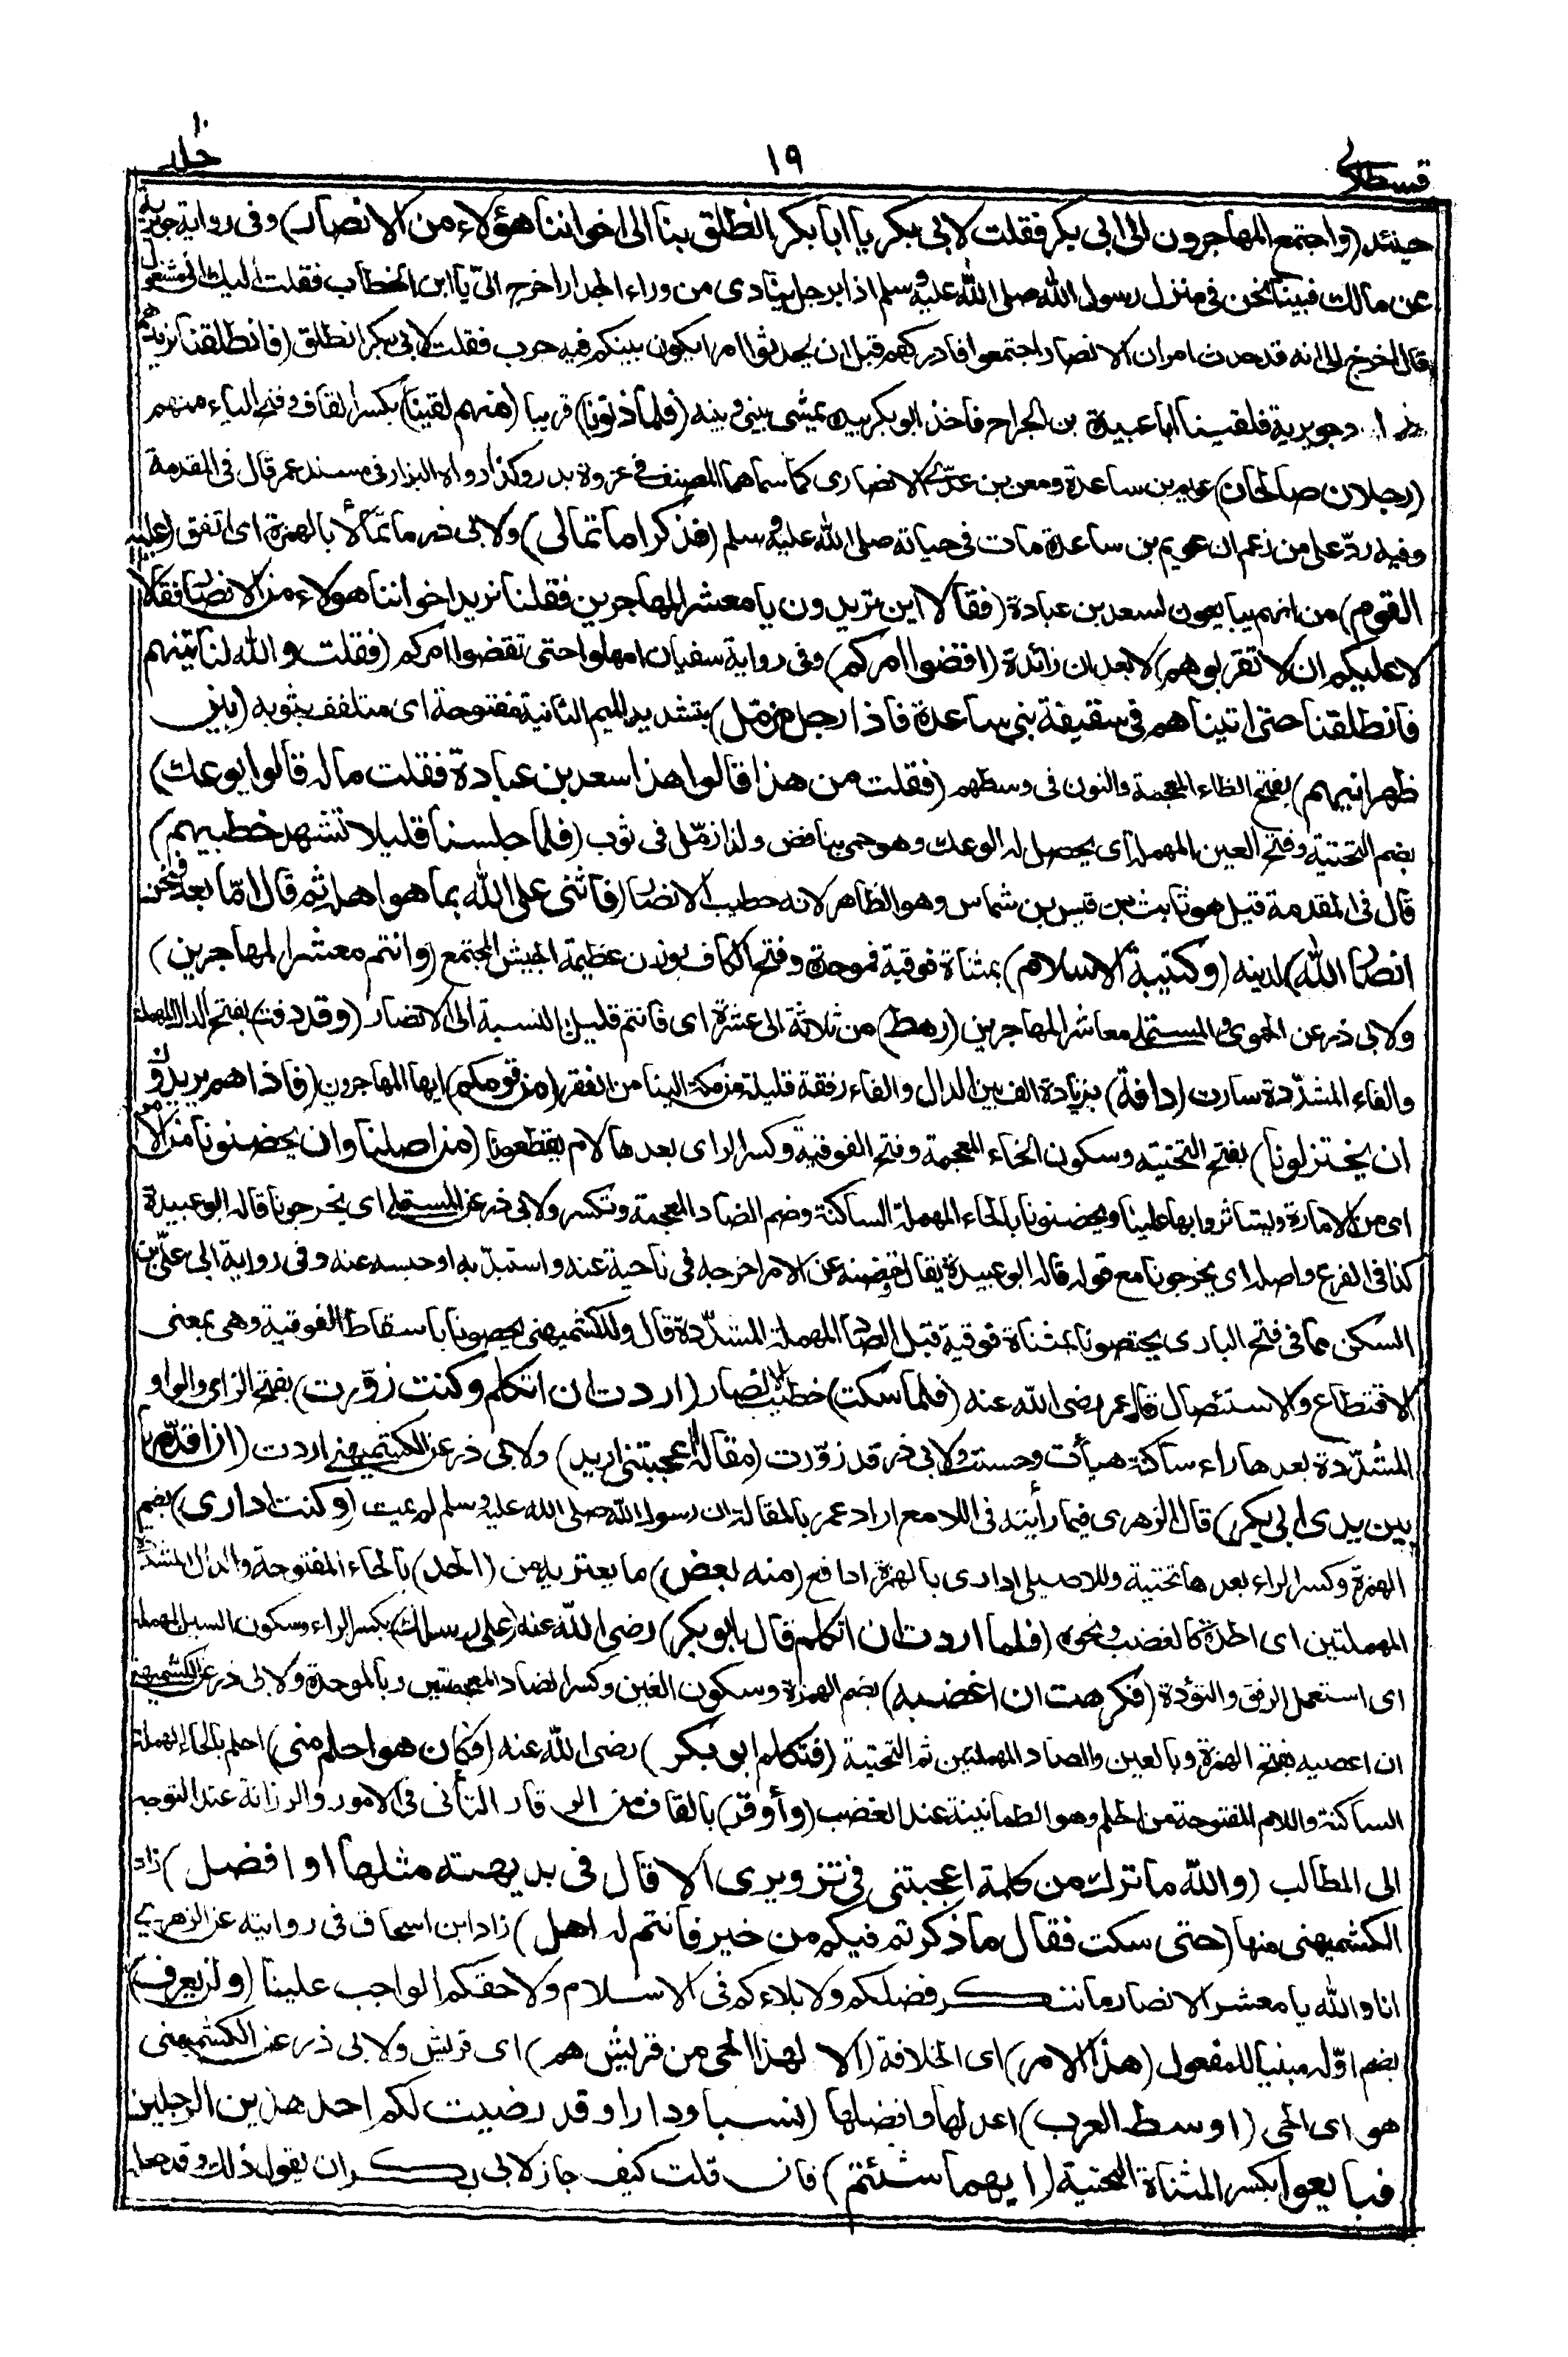 قسطلانی
١٩
جلد ١٠
حينئذ (واجتمع المهاجرون الى ابى بكر فقلت لابى بكر يا ابا بكر انطلق بنا الى اخواننا هؤلاء من الانصار) وفى رواية جويرية
عن مالك فبينا نحن فى منزل رسول الله صلى الله عليه وسلم اذا برجل ينادى من وراء الجدار اخرج الىّ يا ابن الخطاب فقلت اليك انى مشغول
قال اخرج الى انه قد حدث امر ان الانصار اجتمعوا فادركهم قبل ان يحدثوا امرا يكون بينكم فيه حرب فقلت لابى بكر انطلق (فانطلقنا نريدهم
جويرية فلقينا ابا عبيدة بن الجراح فاخذ ابو بكر بيده يمشى بينى وبينه (فلما دنونا) قريبا (منهم لقينا) بكسر القاف وفتح الياء منهم
(رجلان صالحان) عويم بن ساعدة ومعن بن عدىّ الانصارى كما سماهما المصنف فى غزوة بدر وكذا رواه البزار فى مسند عمر قال فى المقدمة
وفيه ردّ على من زعم ان عويم بن ساعدة مات فى حياته صلى الله عليه وسلم (فذكرا ما تمالى) ولابى ذر ما تمّالأ بالهمزة اى اتفق (عليه
القوم) من انهم يبايعون لسعد بن عبادة (فقالا اين تريدون يا معشر المهاجرين فقلنا نريد اخواننا هولاء من الانصار فقالا
لا عليكم ان لا تقربوهم) لا بعد ان زائدة (اقضوا امركم) وفى رواية سفيان امهلوا حتى تقضوا امركم (فقلت والله لنأتينهم
فانطلقنا حتى اتيناهم فى سقيفة بنى ساعدة فاذا رجل مزمّل) بتشديد الميم الثانية مفتوحة اى متلفف بثوبه (بين
ظهرانيهم) بفتح الظاء المعجمة والنون فى وسطهم (فقلت من هذا قالوا هذا سعد بن عبادة فقلت ما له قالوا يوعك)
بضم التحتية وفتح العين المهملة اى يحصل له الوعك وهو حمى بنافض ولذا زمّل فى ثوب (فلما جلسنا قليلا تشهد خطيبهم)
قال فى المقدمة قيل هو ثابت بن قيس بن شماس وهو الظاهر لانه خطيب الانصار (فاثنى على الله بما هو اهله ثم قال امّا بعد فنحن
انصار الله) لدينه (وكتيبة الاسلام) بمثناة فوقية فموحدة وفتح الكاف بوزن عظيمة الجيش المجتمع (وانتم معشر المهاجرين)
ولابى ذر عن الحموى والمستملى معاشر المهاجرين (رهط) من ثلاثة الى عشرة اى فانتم قليل بالنسبة الى الانصار (وقد دفت) بفتح الدال المهملة
والفاء المشدّدة سارت (دافة) بزيادة الف بين الدال والفاء رفقة قليلة من مكة الينا من الفقر (من قومكم) ايها المهاجرون (فاذا هم يريدون
ان يختزلونا) بفتح التحتيه وسكون الخاء المعجمة وفتح الفوقية وكسر الزاى بعدها لام يقطعونا (من اصلنا وان يحضنونا من الامر
اى من الامارة ويستأثروا بها علينا ويحضنونا بالحاء المهملة الساكنة وضم الضاد المعجمة وتكسر ولابى ذر عن المستملى اى يخرجونا قاله ابو عبيدة
كذا فى الفرع واصله اى يخرجونا مع قوله قاله ابو عبيدة يقال حضنه عن الامر اخرجه فى ناحية عنه واستبدّ به او حبسه عنه وفى رواية ابى علىّ بن
السكن مما فى فتح البارى يحتصونا بمثناة فوقية قبل الصاد المهملة المشدّدة قال وللكشميهنى يحصونا باسقاط الفوقية وهى بمعنى
الاقتطاع والاستئصال قال عمر رضى الله عنه (فلما سكت) خطيب الانصار (اردت ان اتكلم وكنت زوّرت) بفتح الزاى والواو
المشدّدة بعدها راء ساكنة هيأت وحسنت ولابى ذر قد زوّرت (مقالة اعجبتنى اريد) ولابى ذر عن الكشميهنى اردت (ان اقدّمها
بين يدى ابى بكر) قال الزهرى فيما رأيته فى اللامع اراد عمر بالمقالة ان رسول الله صلى الله عليه وسلم لم يمت (وكنت ادارى) بضم
الهمزة وكسر الراء بعدها تحتية وللاصيلى ادارئ بالهمزة ادافع (منه بعض) ما يعتريه من (الحد) بالحاء المفتوحة والدال المشدّدة
المهملتين اى الحدة كالغضب ونحوه (فلما اردت ان اتكلم قال ابو بكر) رضى الله عنه (على رسلك) بكسر الراء وسكون السين المهملة
اى استعمل الرفق والتؤدة (فكرهت ان اغضبه) بضم الهمزة وسكون الغين وكسر الضاد المعجمتين وبالموحدة ولابى ذر عن الكشميهنى
ان اعصيه بفتح الهمزة وبالعين والصاد المهملتين ثم التحتية (فتكلم ابو بكر) رضى الله عنه (فكان هو احلم منى) احلم بالحاء المهملة
الساكنة واللام المفتوحة من الحلم وهو الطمانينة عند الغضب (وأوقر) بالقاف من الوقار التأنى فى الامور والرزانة عند التوجه
الى المطالب (والله ما ترك من كلمة اعجبتنى فى تزويرى الا قال فى بديهته مثلها او افضل) زاد
الكشميهنى منها (حتى سكت فقال ما ذكرتم فيكم من خير فانتم له اهل) زاد ابن اسحاق فى روايته عن الزهرى
انا والله يا معشر الانصار ما ننكر فضلكم ولا بلاءكم فى الاسلام ولا حقكم الواجب علينا (ولن يعرف)
بضم اوّله مبنيا للمفعول (هذا الامر) اى الخلافة (الا لهذا الحى من قريش هم) اى قريش ولابى ذر عن الكشميهنى
هو اى الحى (اوسط العرب) اعدلها وافضلها (نسبا ودارا وقد رضيت لكم احد هذين الرجلين
فبايعوا) بكسر المثناة التحتية (ايهما شئتم) فان قلت كيف جاز لابى بكر ان يقول ذلك وقد جعله